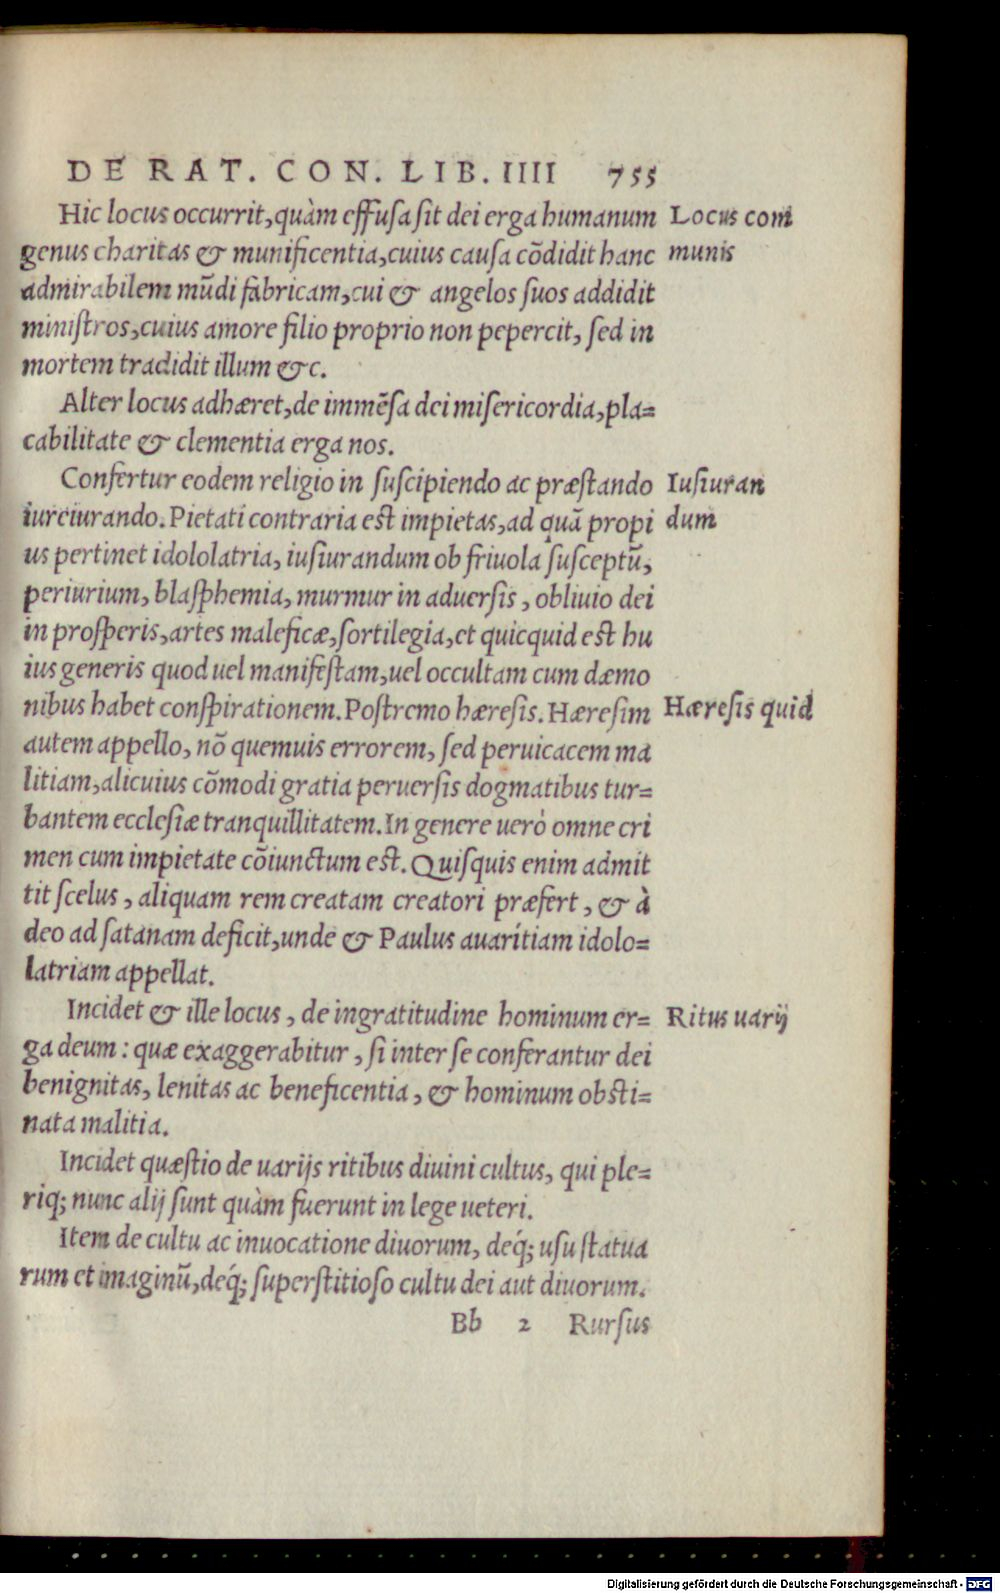 DE RAT. CON. LIB. IIII 755
Hic locus occurrit, quàm effusa sit dei erga humanum
genus charitas & munificentia, cuius causa cōdidit hanc
admirabilem mūdi fabricam, cui & angelos suos addidit
ministros, cuius amore filio proprio non pepercit, sed in
mortem tradidit illum &c.
Locus com
munis
Alter locus adhæret, de immēsa dei misericordia, pla=
cabilitate & clementia erga nos.
Confertur eodem religio in suscipiendo ac præstando
iureiurando. Pietati contraria est impietas, ad quā propi
us pertinet idololatria, iusiurandum ob friuola susceptū,
periurium, blasphemia, murmur in aduersis, obliuio dei
in prosperis, artes maleficæ, sortilegia, et quicquid est hu
ius generis quod uel manifestam, uel occultam cum dæmo
nibus habet conspirationem. Postremo hæresis. Hæresim
autem appello, nō quemuis errorem, sed peruicacem ma
litiam, alicuius cōmodi gratia peruersis dogmatibus tur=
bantem ecclesiæ tranquillitatem. In genere uerò omne cri
men cum impietate cōiunctum est. Quisquis enim admit
tit scelus, aliquam rem creatam creatori præfert, & à
deo ad satanam deficit, unde & Paulus auaritiam idolo=
latriam appellat.
Iusiuran
dum
Hæresis quid
Incidet & ille locus, de ingratitudine hominum er=
ga deum: quæ exaggerabitur, si inter se conferantur dei
benignitas, lenitas ac beneficentia, & hominum obsti=
nata malitia.
Ritus uarij
Incidet quæstio de uarijs ritibus diuini cultus, qui ple=
riq; nunc alij sunt quàm fuerunt in lege ueteri.
Item de cultu ac inuocatione diuorum, deq́; usu statua
rum et imaginū, deq́; superstitioso cultu dei aut diuorum.
Bb 2 Rursus
Digitalisierung gefördert durch die Deutsche Forschungsgemeinschaft - DFG